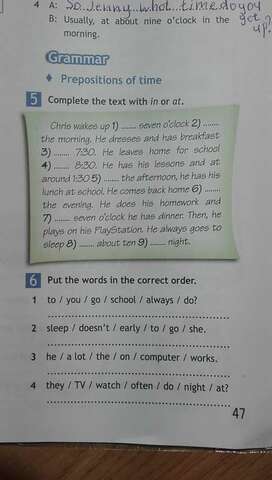 4 A: So Jenny...what...time do you
get up?
B: Usually, at about nine o'clock in the
morning.
Grammar
♦ Prepositions of time
5 Complete the text with in or at.
Chris wakes up 1) ....... seven o'clock 2) .......
the morning. He dresses and has breakfast
3) ....... 7:30. He leaves home for school
4) ....... 8:30. He has his lessons and at
around 1:30 5) ....... the afternoon, he has his
lunch at school. He comes back home 6) .......
the evening. He does his homework and
7) ....... seven o'clock he has dinner. Then, he
plays on his PlayStation. He always goes to
sleep 8) ....... about ten 9) ....... night.
6 Put the words in the correct order.
1 to / you / go / school / always / do?
2 sleep / doesn't / early / to / go / she.
3 he / a lot / the / on / computer / works.
4 they / TV / watch / often / do / night / at?
47